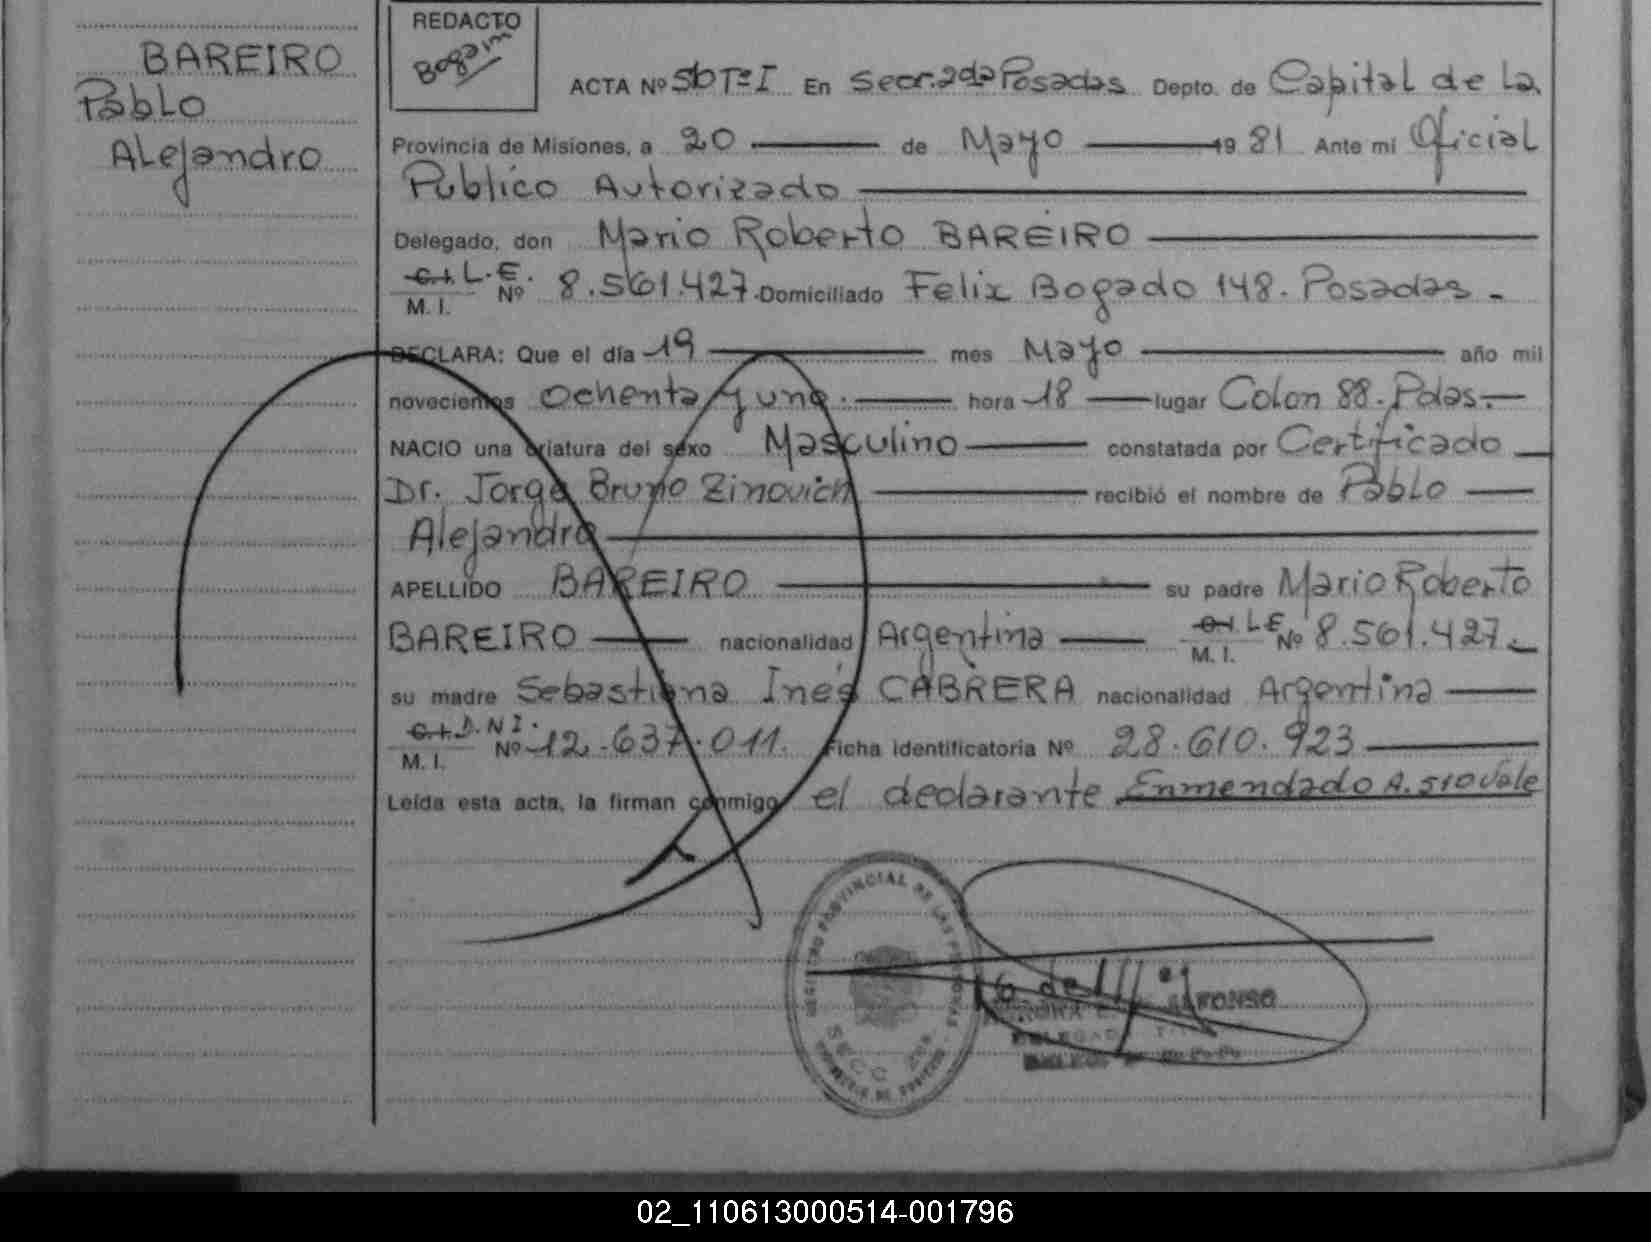 BAREIRO
Pablo
Alejandro
REDACTO
ACTA Nº En Secr. 2da Posadas Depto. de Capital de la
Provincia de Misiones, a 20 de Mayo 19 81 Ante mi Oficial
Publico Autorizado
Delegado, don Mario Roberto BAREIRO
C.I. L.E.
M. I. Nº 8.561.427. Domiciliado Felix Bogado 148. Posadas.-
DECLARA: Que el día 19 mes Mayo año mil
novecientos Ochenta y uno. hora 18 lugar Colon 88. Pdas.-
NACIO una criatura del sexo Masculino constatada por Certificado
Dr. Jorge Bruno Zinovich recibió el nombre de Pablo
Alejandro
APELLIDO BAREIRO su padre Mario Roberto
BAREIRO nacionalidad Argentina C.I. L.E.
M. I. Nº 8.561.427.-
su madre Sebastiana Inés CABRERA nacionalidad Argentina
C.I. D.N.I.
M. I. Nº 12.637.011. Ficha Identificatoria Nº 28.610.923
Leída esta acta, la firman conmigo el declarante Enmendado A. 510 Vale
REGISTRO PROVINCIAL DE LAS
SECC
ALFONSO
02_110613000514-001796